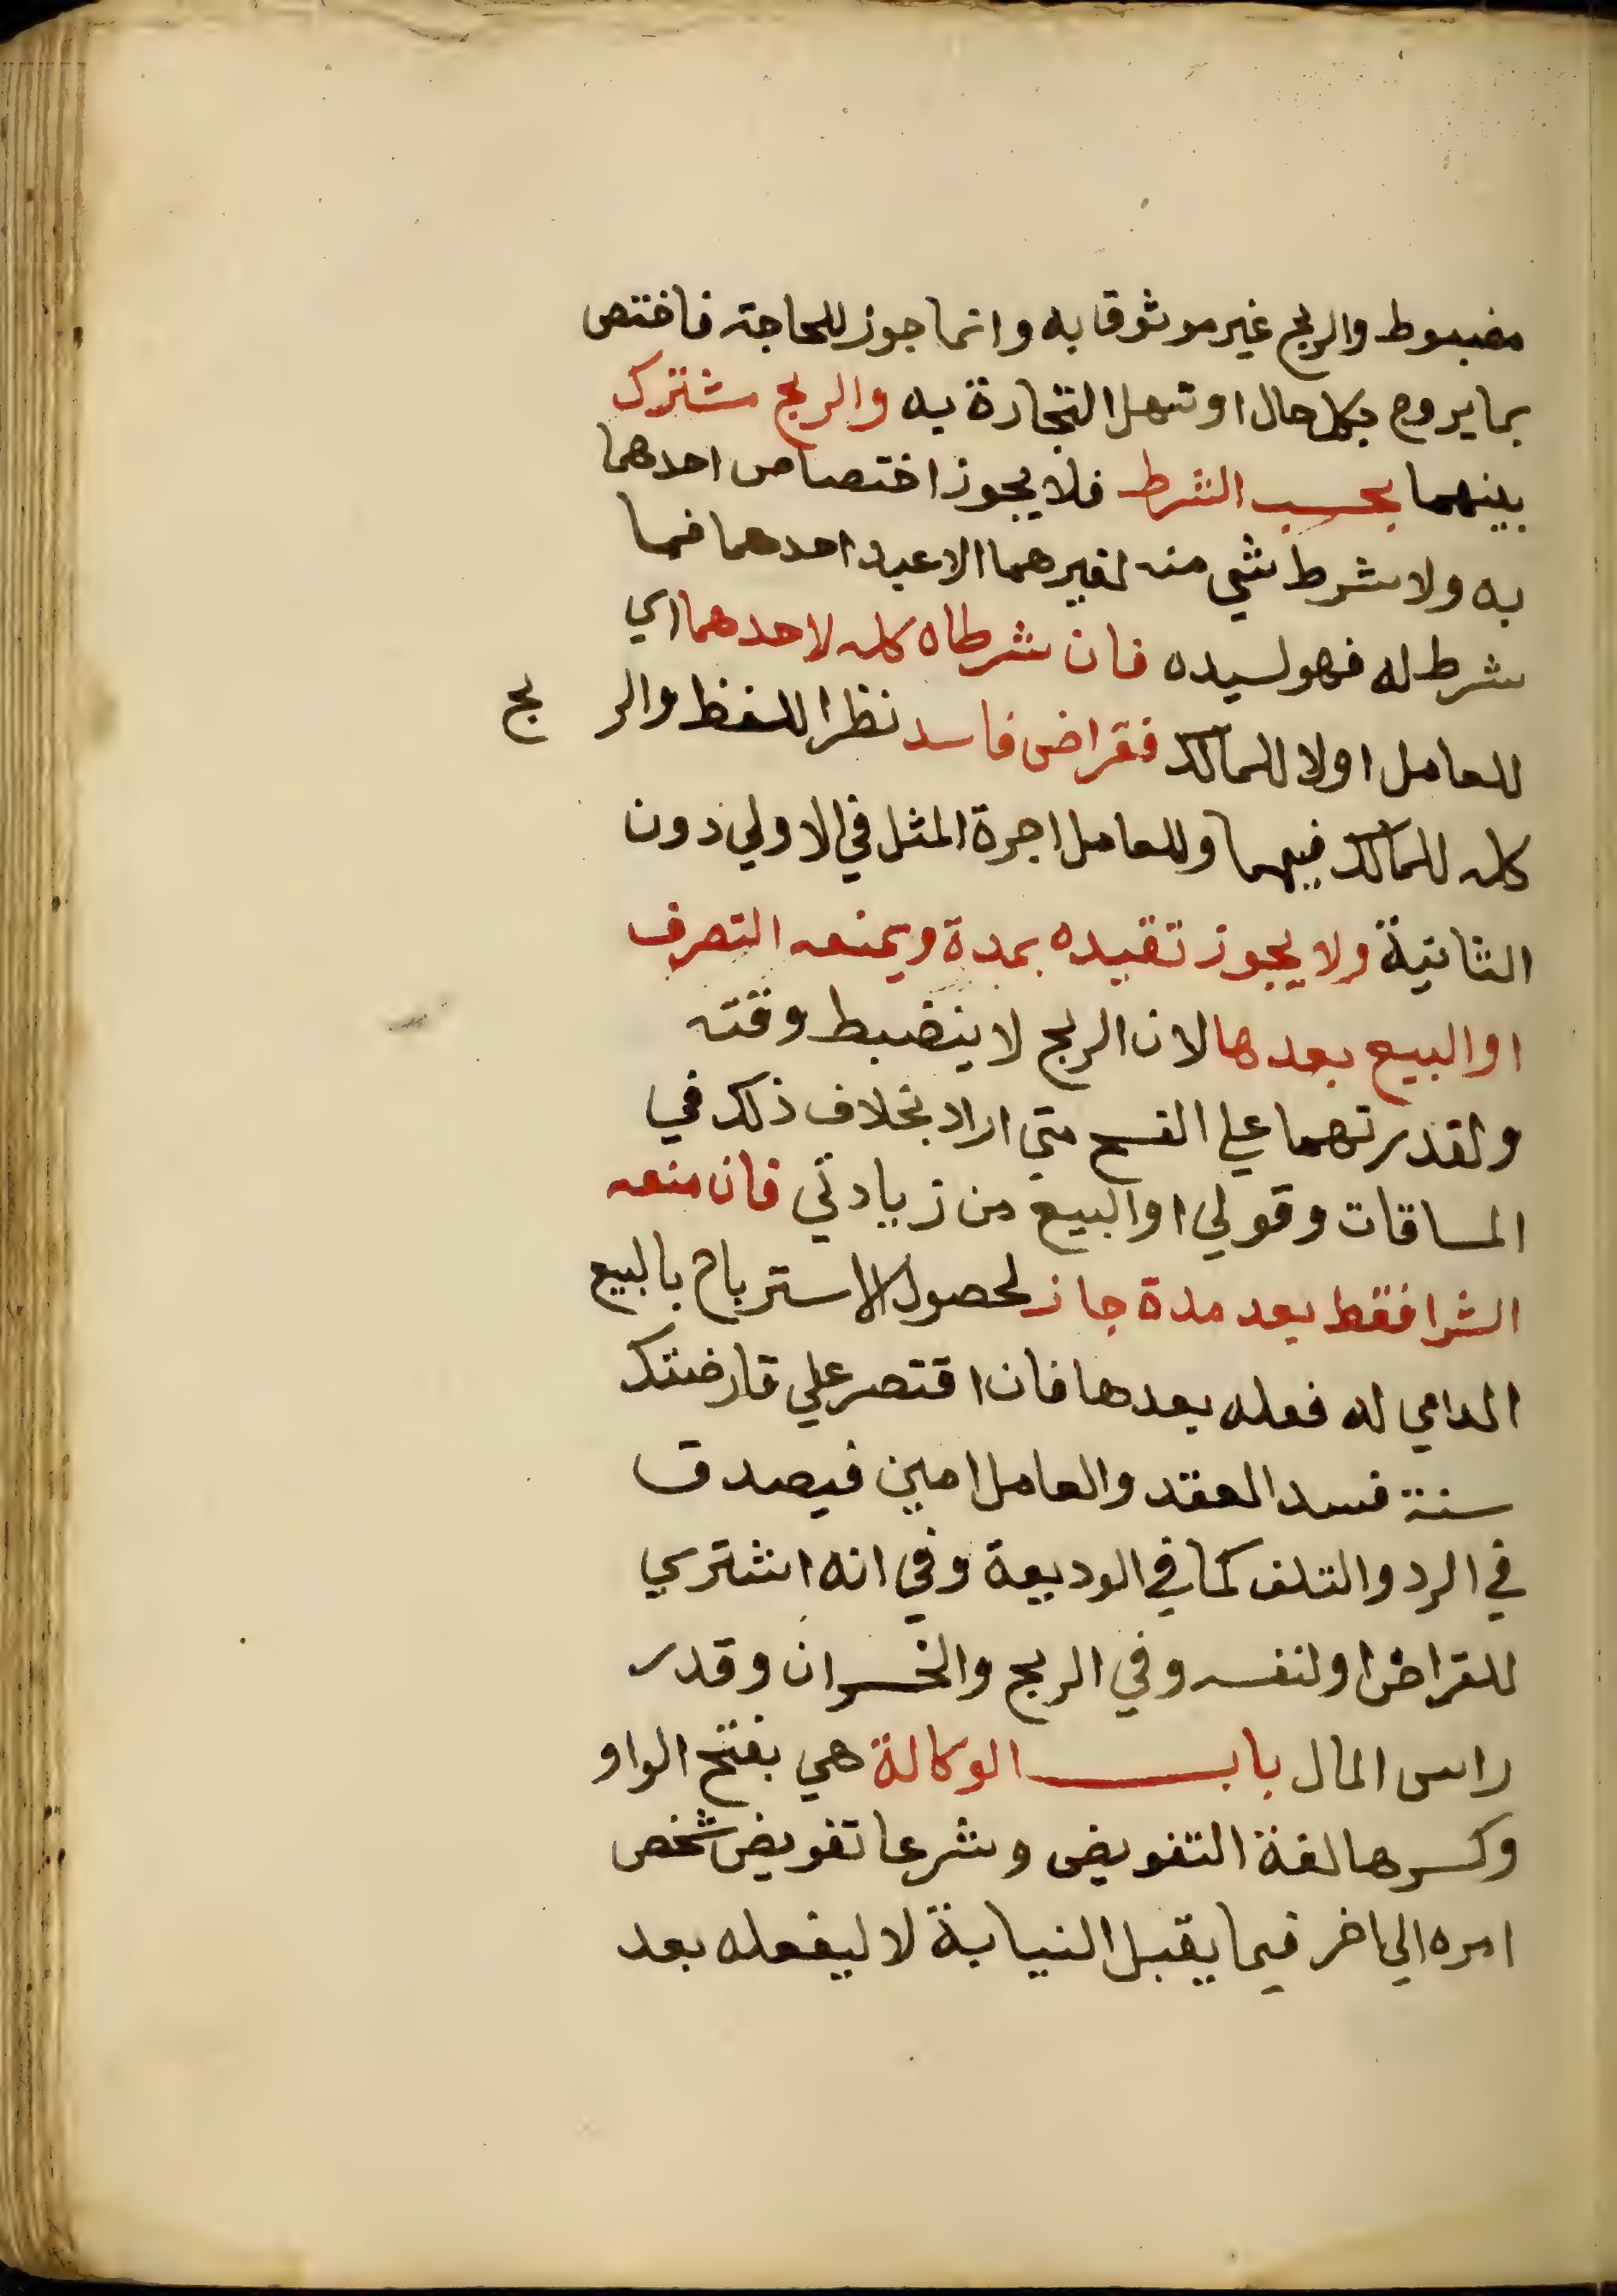 مضبوط والربح غير موثوقا به وانما جوز للحاجة فاختص
بما يروج بكل حال او تسهل التجارة به والربح مشترك
بينهما بحسب الشرط فلا يجوز اختصاص احدهما
به ولا شرط شي منه لغيرهما الا عبد احدهما فما
شرط له فهو لسيده فان شرطاه كله لاحدهما اي
للعامل او لا للمالك فقراض فاسد نظرا للفظ والربح
كله للمالك فيهما وللعامل اجرة المثل في الاولي دون
الثانية ولا يجوز تقيده بمدة ويمنعه التصرف
او البيع بعدها لان الربح لا ينضبط وقته
ولقدرتهما علي الفسح متي اراد بخلاف ذلك في
المساقات وقولي او البيع من زيادتي فان منعه
الشرا فقط بعد مدة جاز لحصول الاسترباح بالبيع
الدامي له فعله بعدها فان اقتصر علي قارضتك
سنة فسد العقد والعامل امين فيصدق
في الرد والتلف كما في الوديعة وفي انه اشتري
للقراض او لنفسه وفي الربح والخسران وقدر
راس المال باب الوكالة هي بفتح الواو
وكسرها لغة التفويض وشرعا تفويض شخص
امره الي اخر فيما يقبل النيابة لا ليفعله بعد